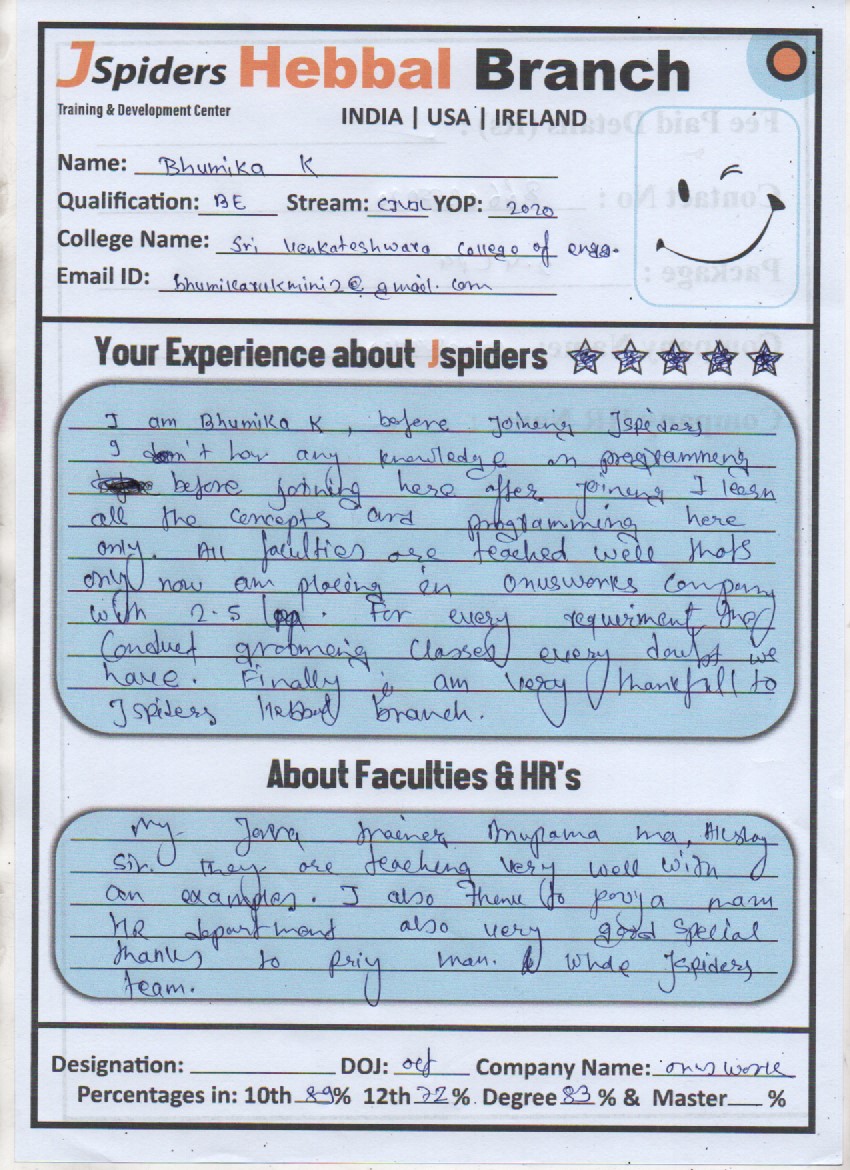 JSpiders Hebbal Branch
Training & Development Center
INDIA | USA | IRELAND
Name: Bhumika K
Qualification: BE Stream: Civil YOP: 2020
College Name: Sri Venkateshwara College of engg.
Email ID: bhumikarukmini2@gmail.com
Your Experience about Jspiders
I am Bhumika K, before joineng Jspiders
I don't hav any knowledge on programmeng
before joining here after joineng I learn
all the concepts and programming here
only. All faculties are teached well thats
only now am placing in Onusworks Company
with 2.5 lpa. For every requirment they
Conduct groomeng Classes every doubt we
have. Finally i am very thankfull to
Jspiders Hebbal branch.
About Faculties & HR's
My Java trainer Anupama ma,
Sir. They are teaching very well with
an examples. I also mam
HR department also very good Special
thanks to priy mam. whole Jspiders
team.
Designation: DOJ: oct Company Name: onus work
Percentages in: 10th 89% 12th 72% Degree 83% & Master %